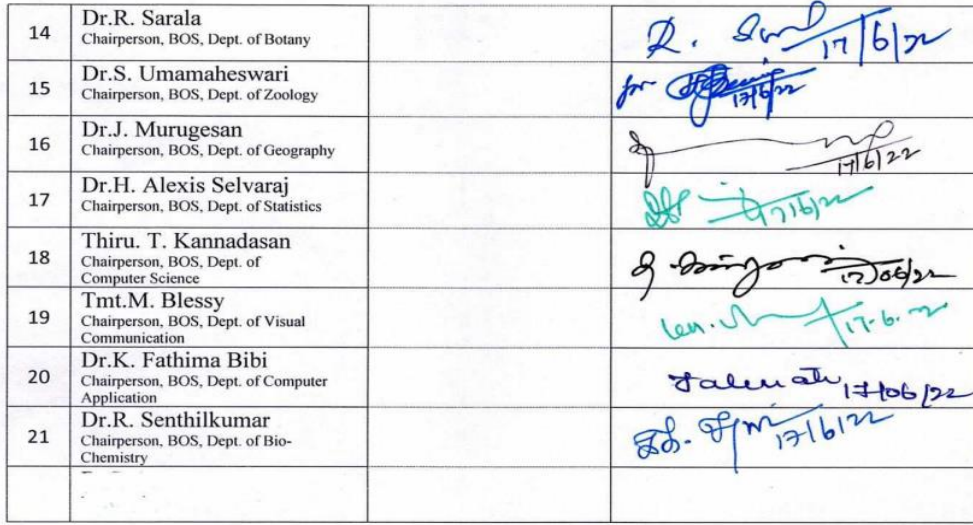 14
Dr.R. Sarala
Chairperson, BOS, Dept. of Botany
R. 17/6/22
15
Dr.S. Umamaheswari
Chairperson, BOS, Dept. of Zoology
for 17/6/22
16
Dr.J. Murugesan
Chairperson, BOS, Dept. of Geography
17/6/22
17
Dr.H. Alexis Selvaraj
Chairperson, BOS, Dept. of Statistics
17/6/22
18
Thiru. T. Kannadasan
Chairperson, BOS, Dept. of
Computer Science
17/06/22
19
Tmt.M. Blessy
Chairperson, BOS, Dept. of Visual
Communication
17-6-22
20
Dr.K. Fathima Bibi
Chairperson, BOS, Dept. of Computer
Application
17/06/22
21
Dr.R. Senthilkumar
Chairperson, BOS, Dept. of Bio-
Chemistry
17/6/22